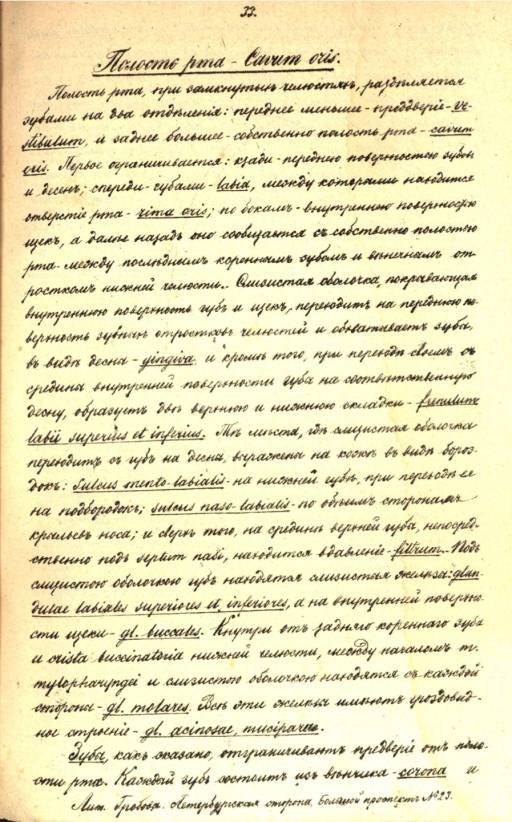 33.
Полость рта - Cavum oris.
Полость рта, при замкнутыхъ челюстяхъ, раздѣляется
зубами на два отдѣленія: переднее меньшее - преддверіе - ve-
stibulum, и заднее большее - собственно полость рта - cavum
oris. Первое ограничивается: кзади - переднею поверхностью зубовъ
и десенъ; спереди - губами - labia, между которыми находится
отверстіе рта - rima oris; по бокамъ - внутреннею поверхностью
щекъ, а далѣе назадъ оно сообщается съ собственно полостью
рта между послѣднимъ кореннымъ зубомъ и вѣнечнымъ от-
росткомъ нижней челюсти. Слизистая оболочка, покрывающая
внутреннюю поверхность губъ и щекъ, переходитъ на переднюю по-
верхность зубныхъ отростковъ челюстей и обхватываетъ зубы,
въ видѣ десна - gingiva и кромѣ того, при переходѣ своемъ съ
средины внутренней поверхности губы на соотвѣтственную
десну, образуетъ двѣ верхнюю и нижнюю складки - frenulum
labii superius et inferius. Тѣ мѣста, гдѣ слизистая оболочка
переходитъ съ губъ на десна, выражена на кожѣ въ видѣ бороз-
докъ: sulcus mento-labialis - на нижней губѣ, при переходѣ ея
на подбородокъ; sulcus naso-labialis - по обѣимъ сторонамъ
крыльевъ носа; и сверхъ того, на срединѣ верхней губы, непосред-
ственно подъ septum nasi, находится вдавленіе - filtrum. Подъ
слизистою оболочкою губъ находятся слизистыя железы: glan-
dulae labiales superiores et inferiores, а на внутренней поверхно-
сти щеки - gl. buccales. Кнутри отъ задняго кореннаго зуба
и crista buccinatoria нижней челюсти, между началомъ m.
mylopharyngei и слизистою оболочкою находятся съ каждой
стороны - gl. molares. Всѣ эти железы имѣютъ гроздовид-
ное строеніе - gl. acinosae, muciparae.
Зубы, какъ сказано, отграничиваютъ предверіе отъ поло-
сти рта. Каждый зубъ состоитъ изъ вѣнчика - corona и
Лит. Гробова. Петербургская сторона, Большой проспектъ № 23.